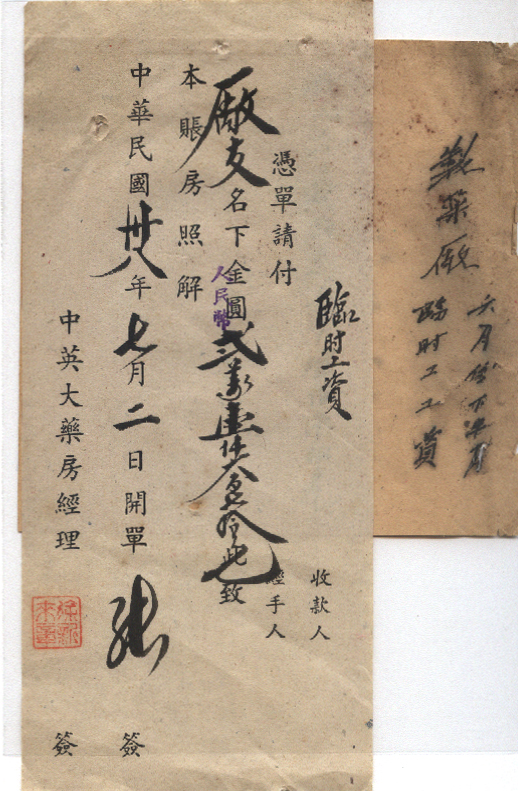 製藥厰
六月份下半月
臨时工工資
收款人
經手人
臨时工資
憑單請付
厰友名下金圓
人民幣
此致
本賬房照解
中華民國卅八年七月二日開單
中英大藥房經理
簽
簽